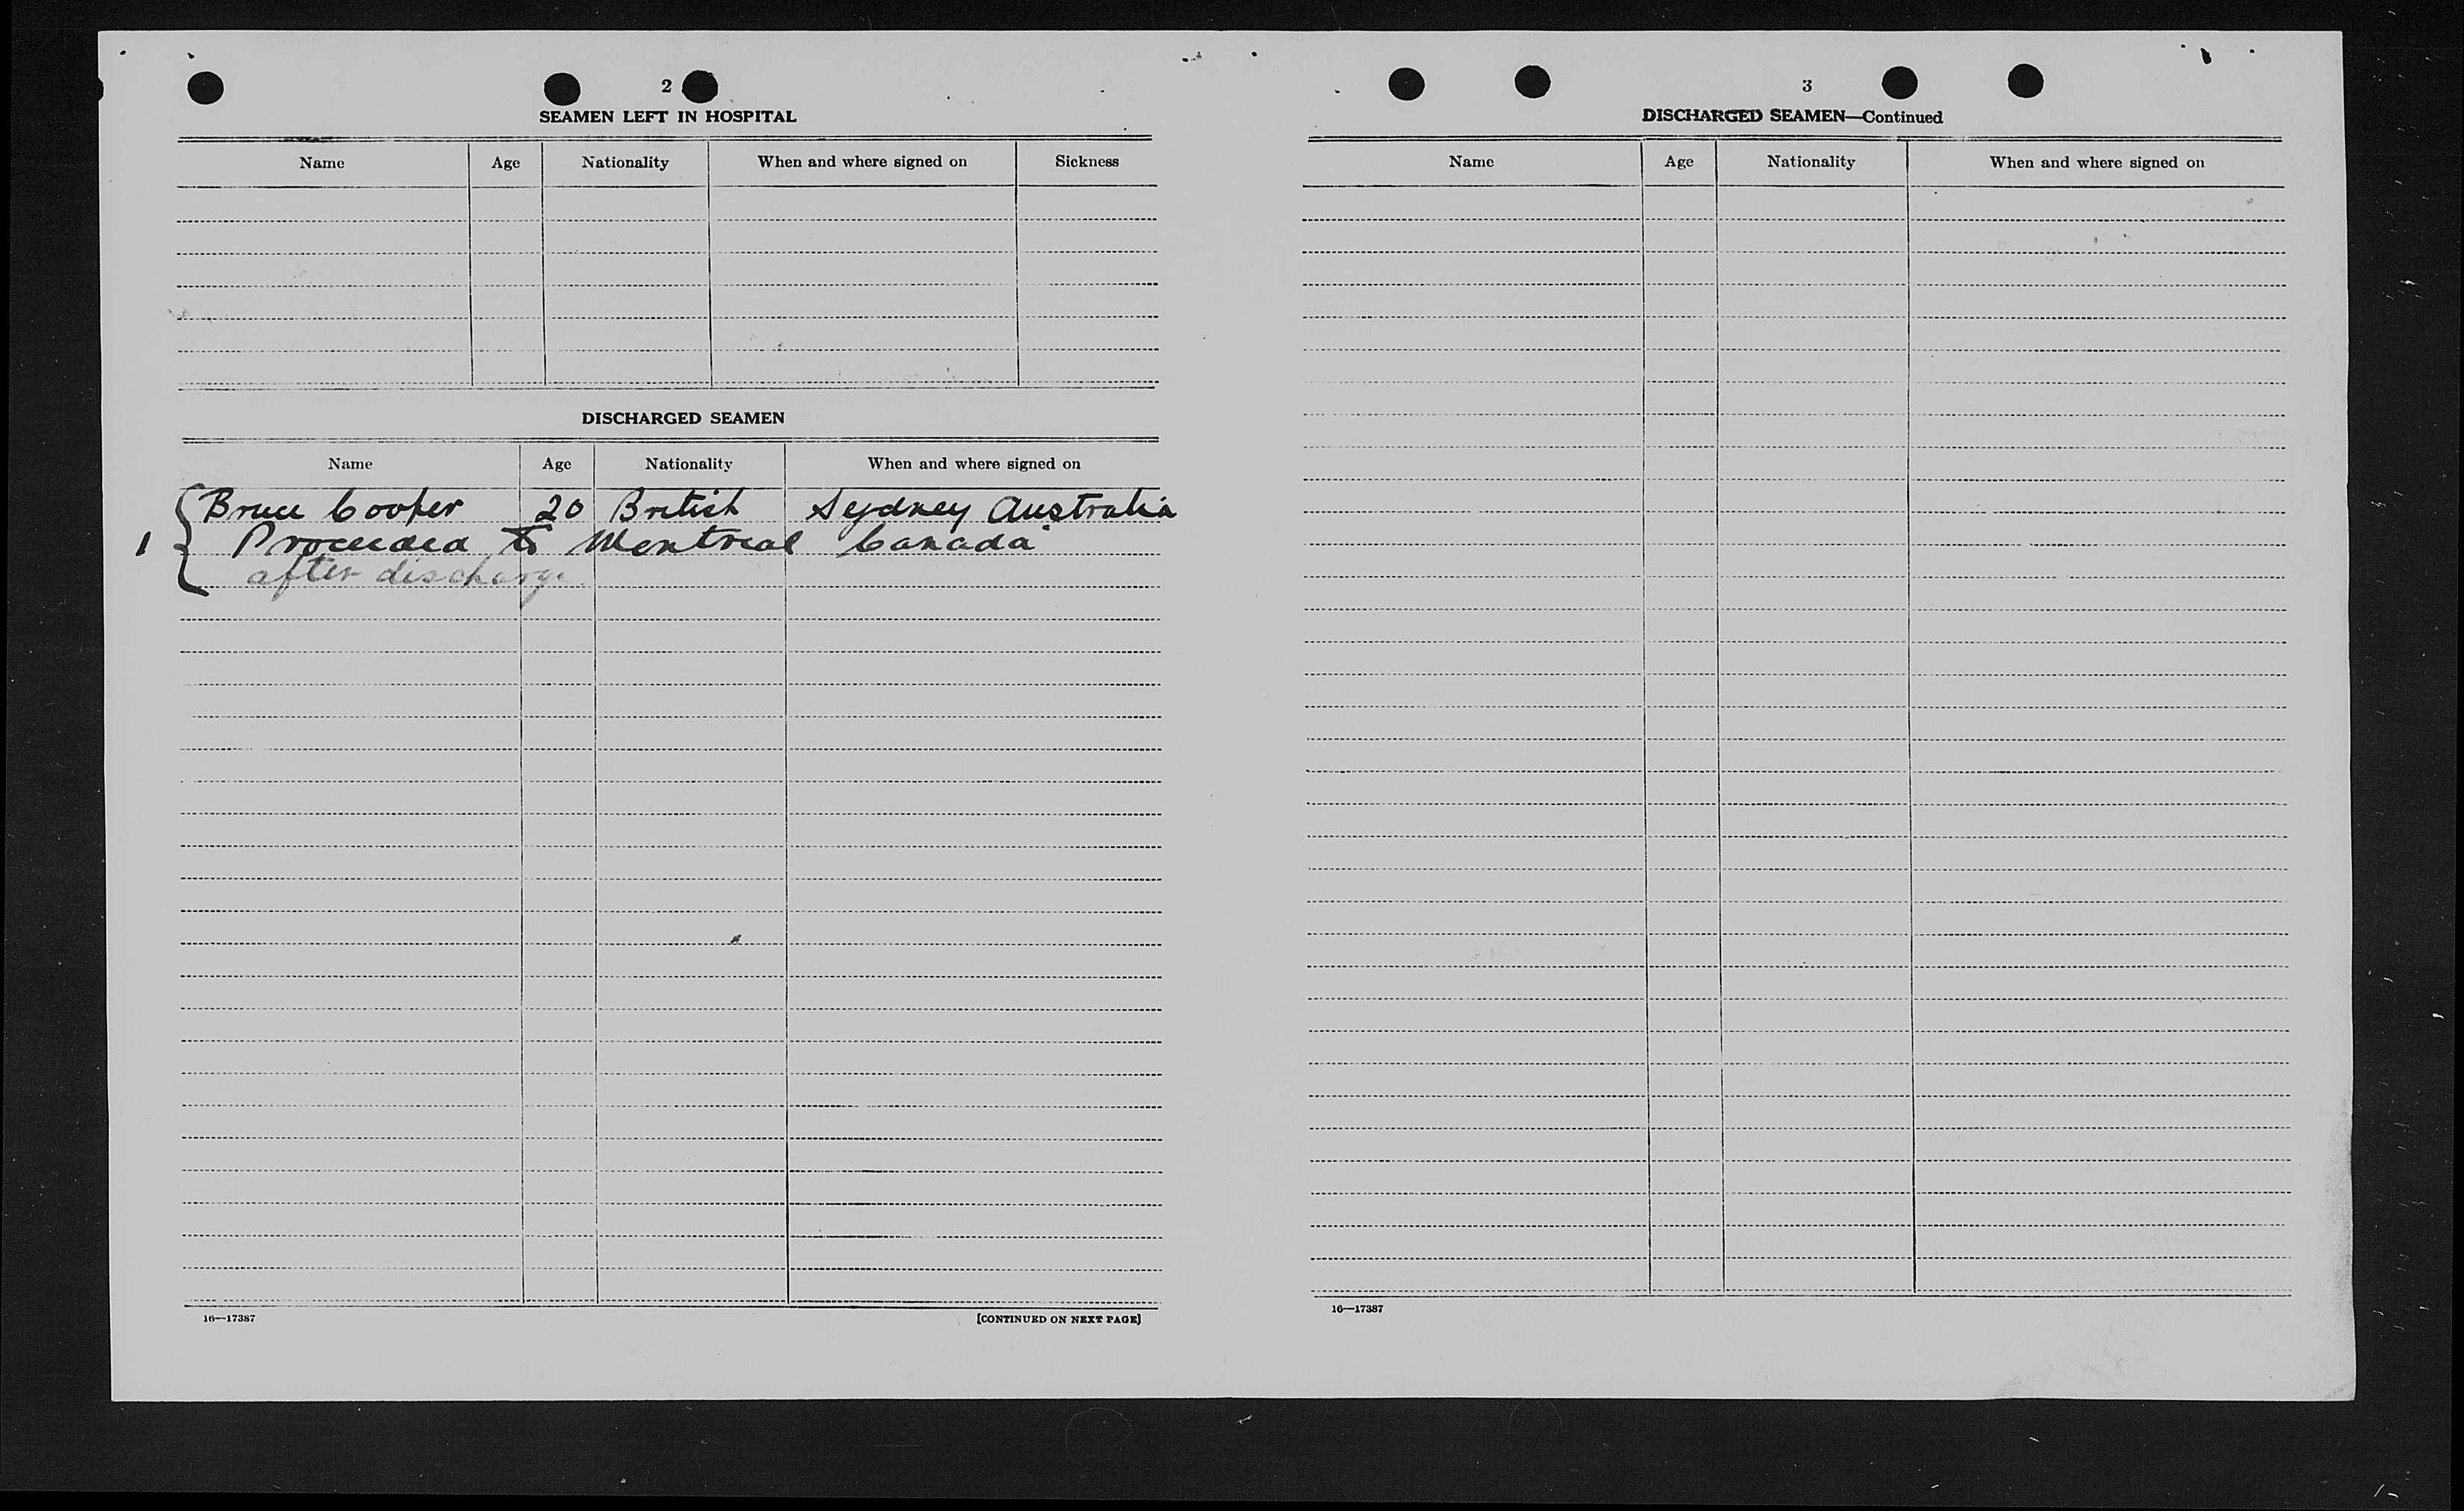 2
SEAMEN LEFT IN HOSPITAL
Name Age Nationality When and where signed on Sickness
DISCHARGED SEAMEN
Name Age Nationality When and where signed on
Bruce Cooper 20 British Sydney Australia
1 Proceeded to Montreal Canada
after discharge
16—17387 [CONTINUED ON NEXT PAGE]
3
DISCHARGED SEAMEN—Continued
Name Age Nationality When and where signed on
16—17387